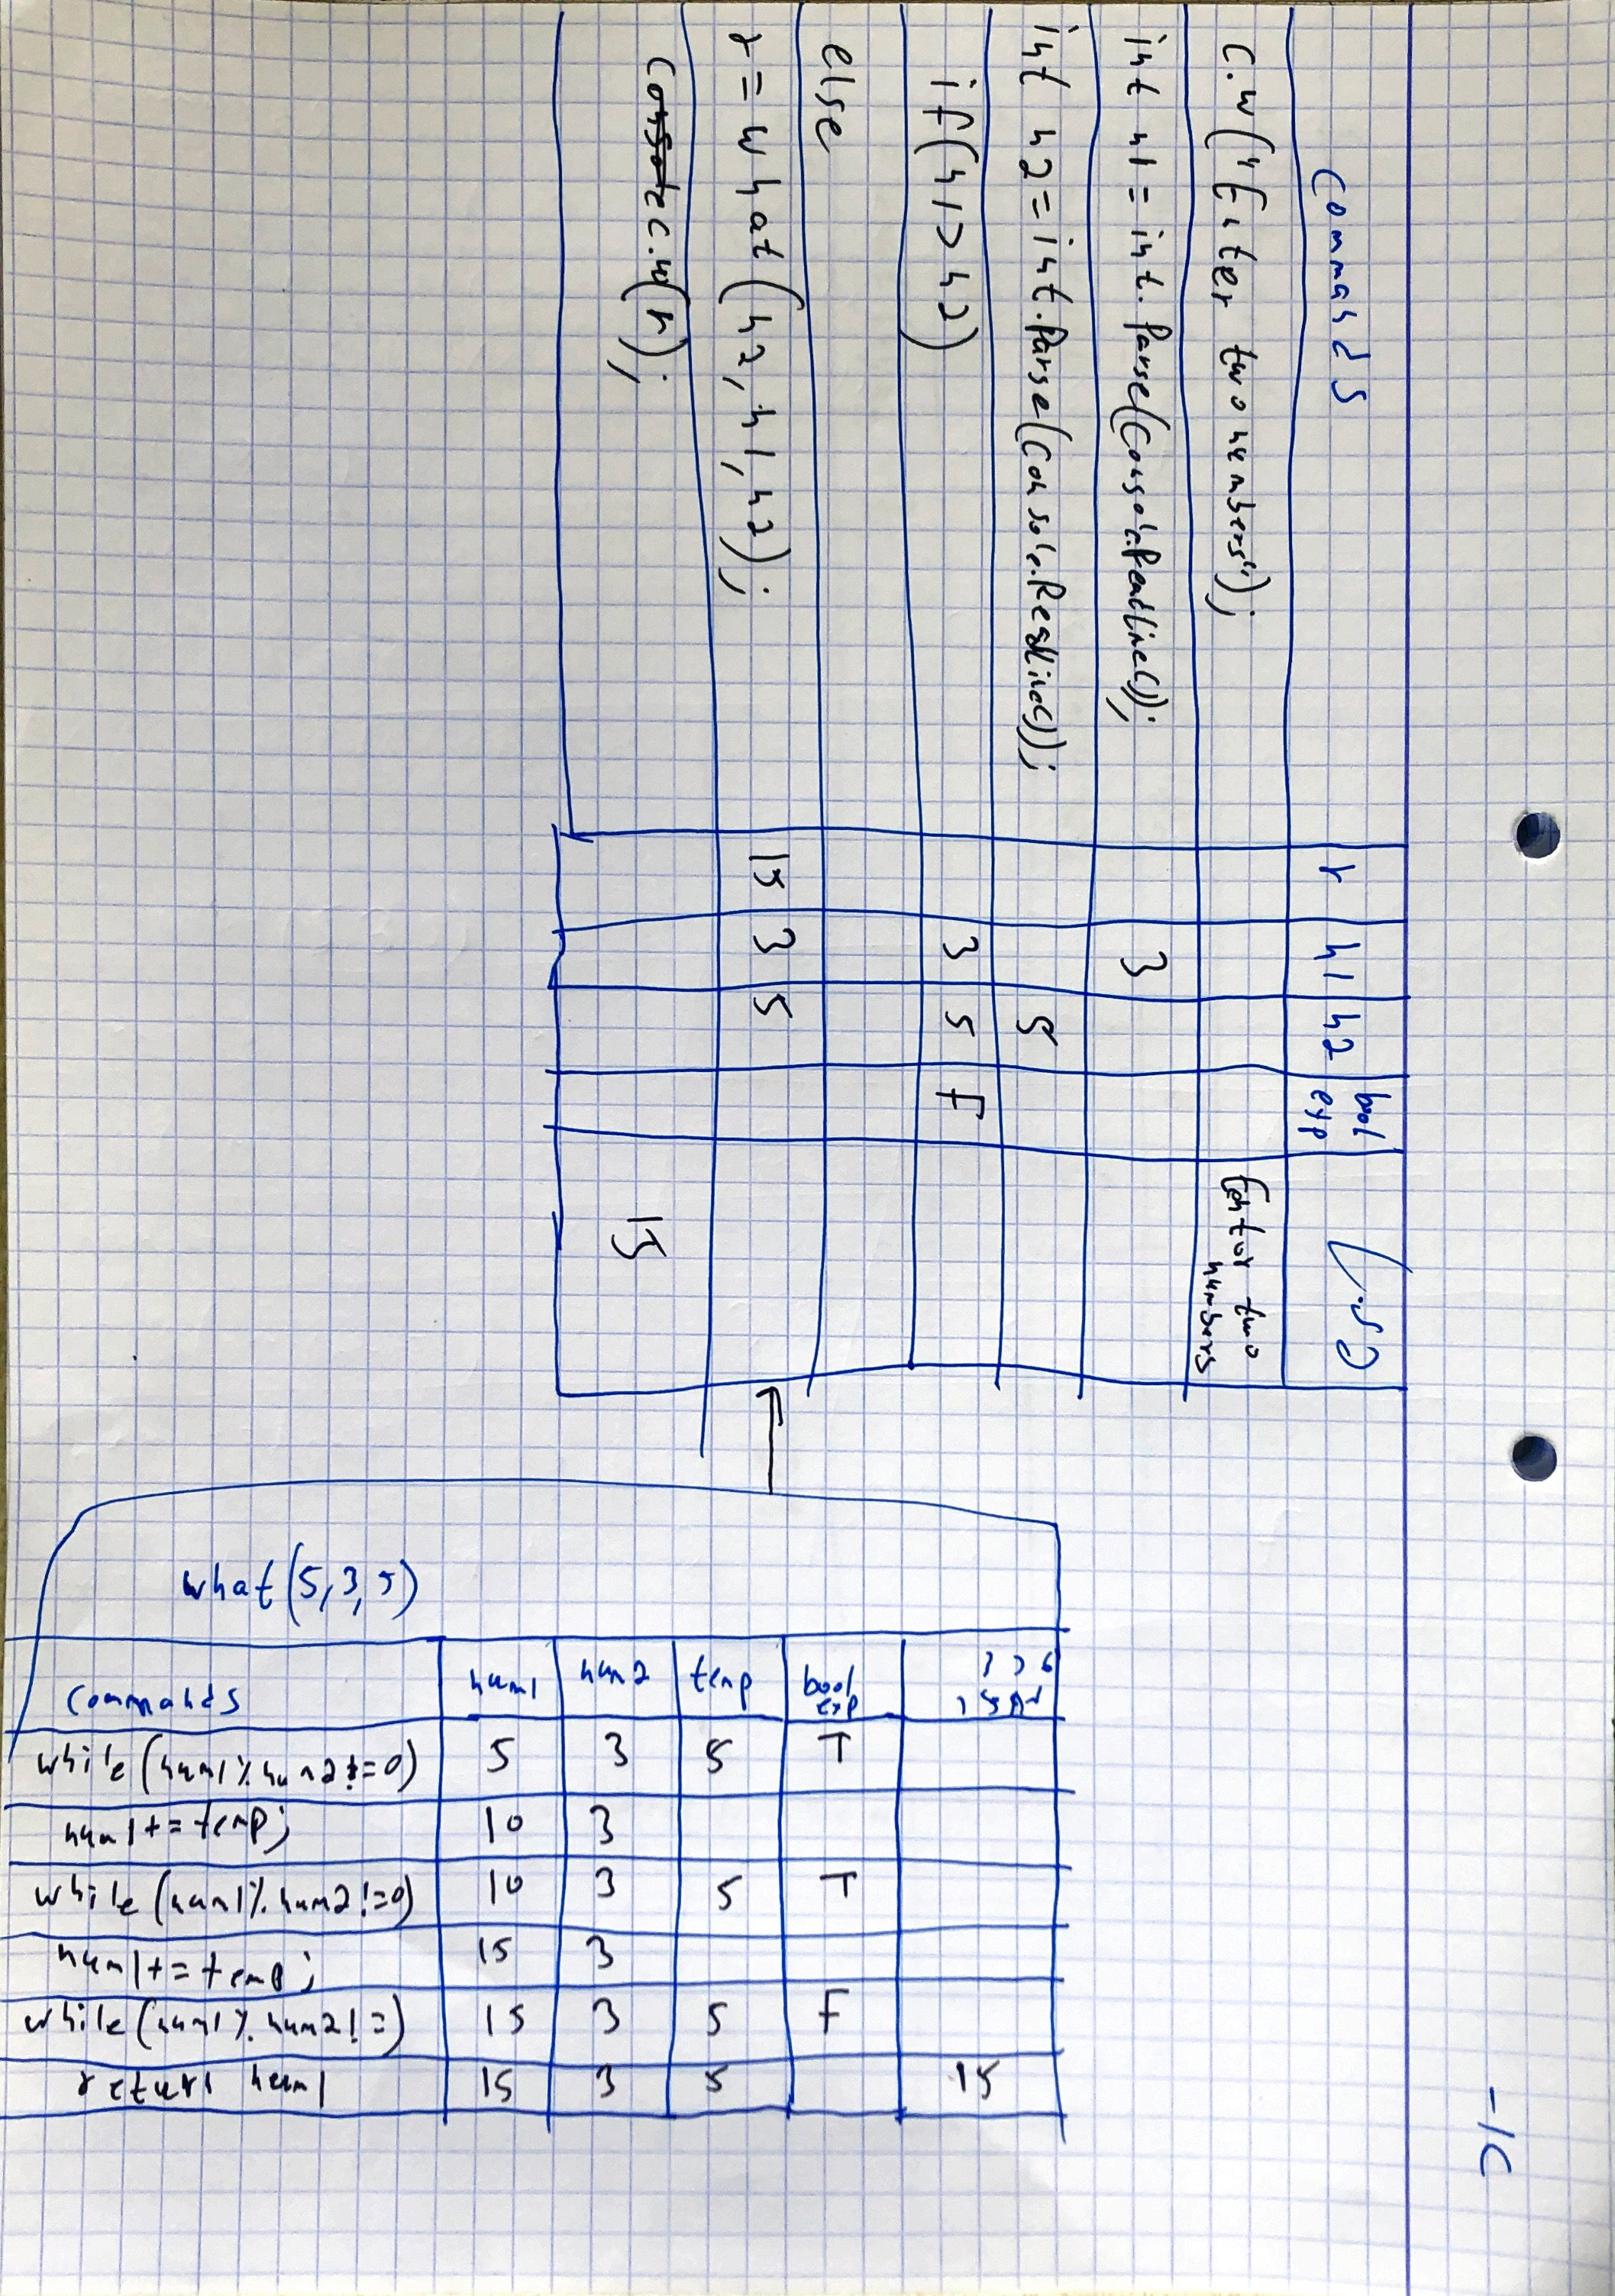 Commands r n1 n2 bool exp
C.W("Enter two numbers"); Enter two numbers
int n1 = int.Parse(Console.ReadLine()); 3
int n2 = int.Parse(Console.ReadLine()); 5
if(n1>n2) 3 5 F
else
r = what(n2, n1, n2); 15 3 5
C.W(r); 15
what(5,3,5)
commands num1 num2 temp bool exp
while(num1%num2!=0) 5 3 5 T
num1+=temp; 10 3
while(num1%num2!=0) 10 3 5 T
num1+=temp; 15 3
while(num1%num2!=) 15 3 5 F
return num1 15 3 5 15